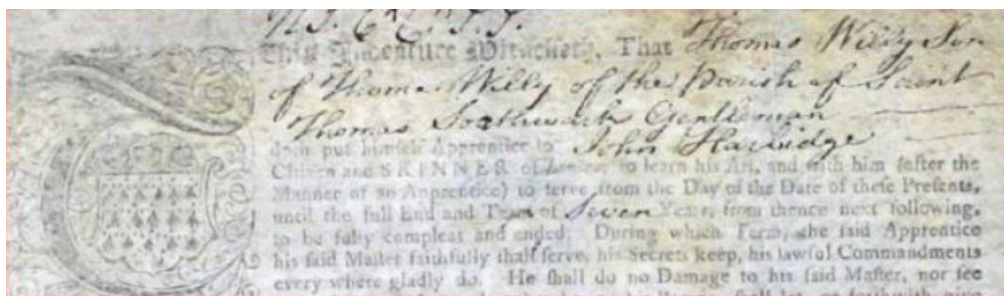 This Indenture Witnesseth, That Thomas Willy Son
of Thomas Willy of the Parish of Saint
Thomas Southwark Gentleman
doth put himself Apprentice to John Harridge
Citizen and SKINNER of London, to learn his Art, and with him (after the
Manner of an Apprentice) to serve from the Day of the Date of these Presents,
until the full End and Term of Seven Years, from thence next following,
to be fully compleat and ended: During which Term, the said Apprentice
his said Master faithfully shall serve, his Secrets keep, his lawful Commandments
every where gladly do. He shall do no Damage to his said Master, nor see